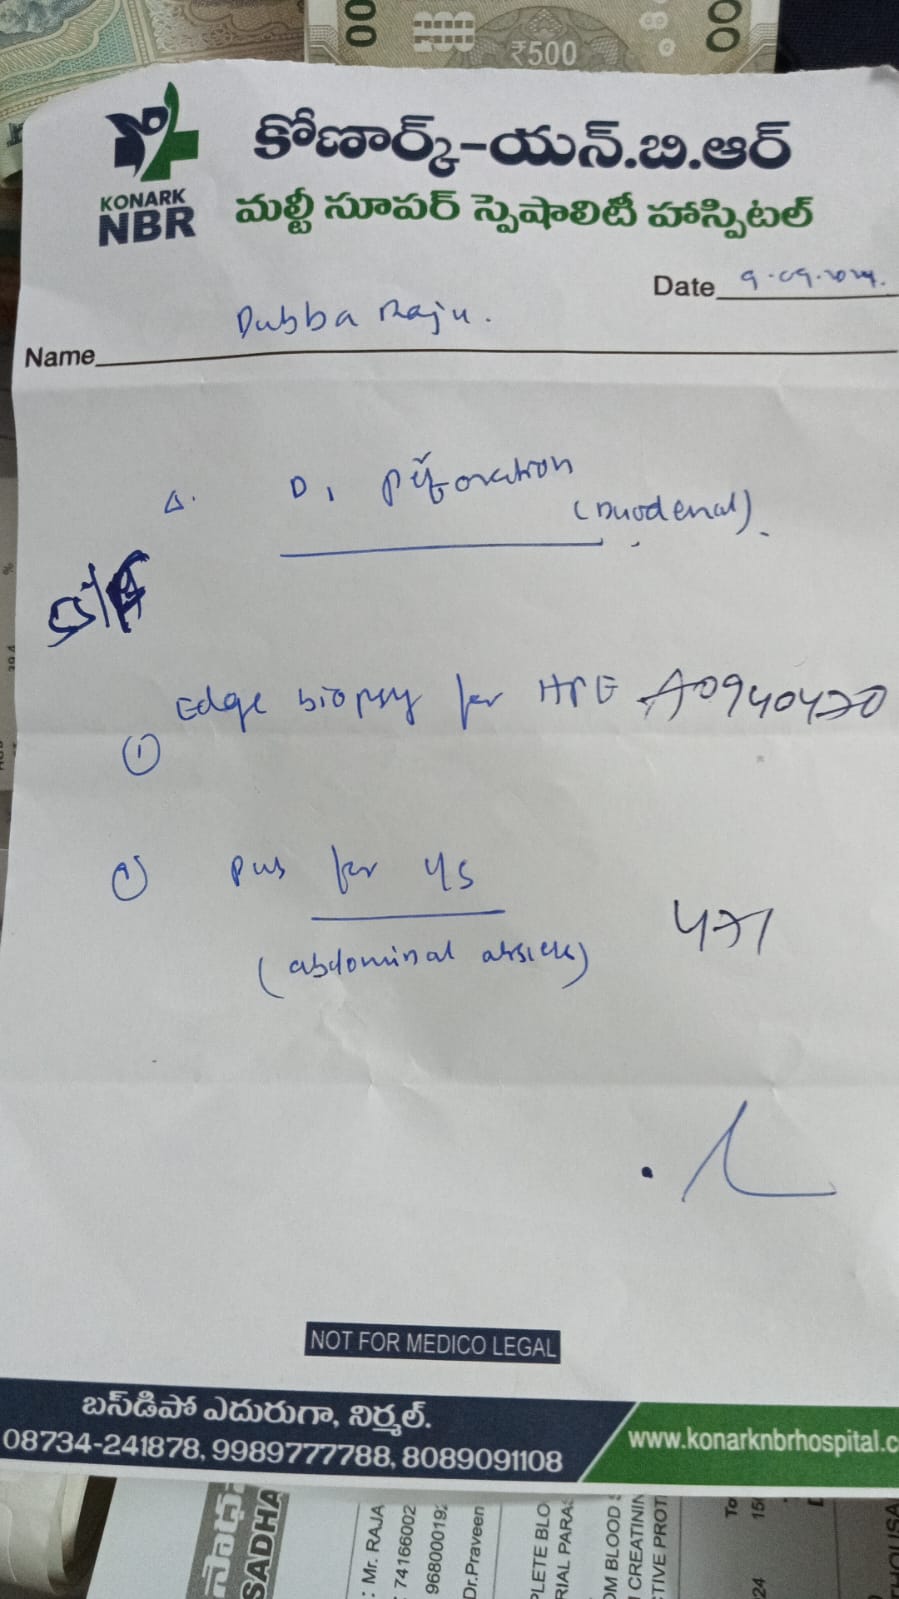 00
₹500
00
కోణార్క్-యన్.బి.ఆర్
KONARK
NBR
మల్టీ సూపర్ స్పెషాలిటీ హాస్పిటల్
Date 9.09.2024.
Name Dubba Raju.
Δ. D1 perforation
(Duodenal).
Edge biopsy for HPE A0940470
①
② pus for c/s
(abdominal absicess) 471
NOT FOR MEDICO LEGAL
బస్‌డిపో ఎదురుగా, నిర్మల్.
08734-241878, 9989777788, 8089091108
www.konarknbrhospital.c
SADHA
: Mr. RAJA
74166002
968000192
Dr.Praveen
PLETE BLO
RIAL PARAS
OM BLOOD S
CREATININ
CTIVE PROT